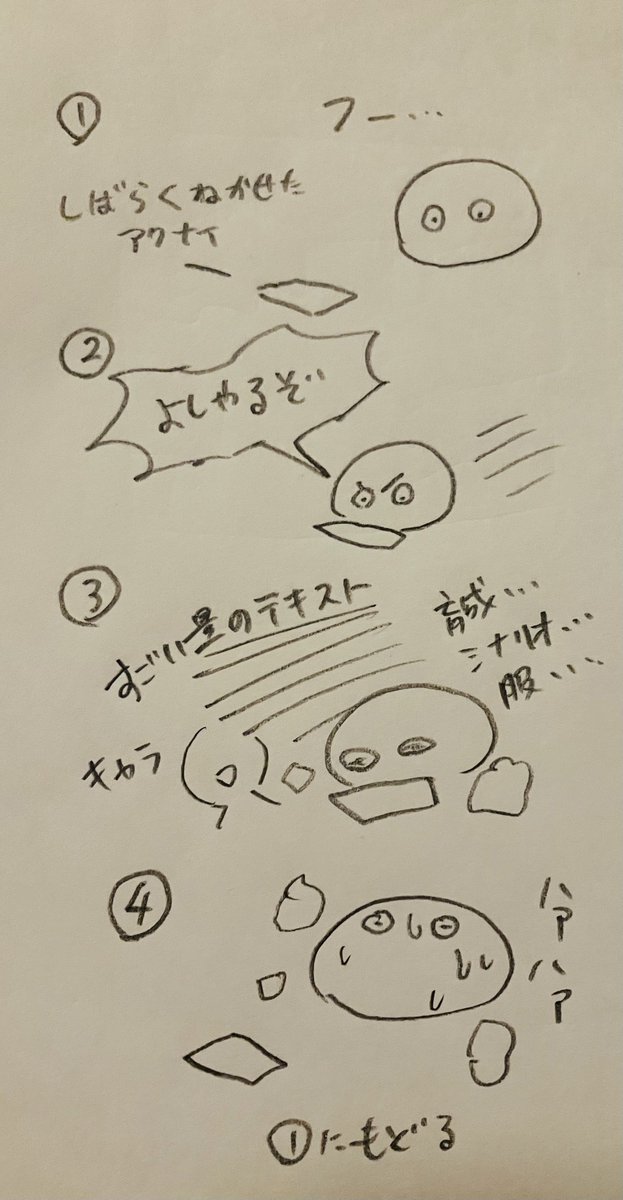 ①
フー…
しばらくねかせた
アクナイ
②
よしやるぞ
③
すごい量のテキスト
育成…
シナリオ…
服…
キャラ
④
ハア
ハア
①にもどる